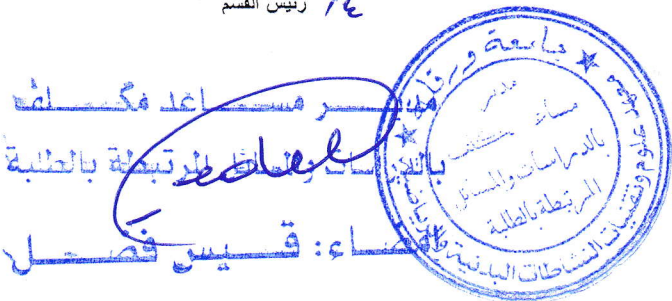 رئيس القسم
مدير مساعد مكلف
بالدراسات والمسائل المرتبطة بالطلبة
إمضاء: قيس فصيل
جامعة ورقلة
معهد علوم وتقنيات النشاطات البدنية والرياضية
مدير
مساعد مكلف
بالدراسات والمسائل
المرتبطة بالطلبة